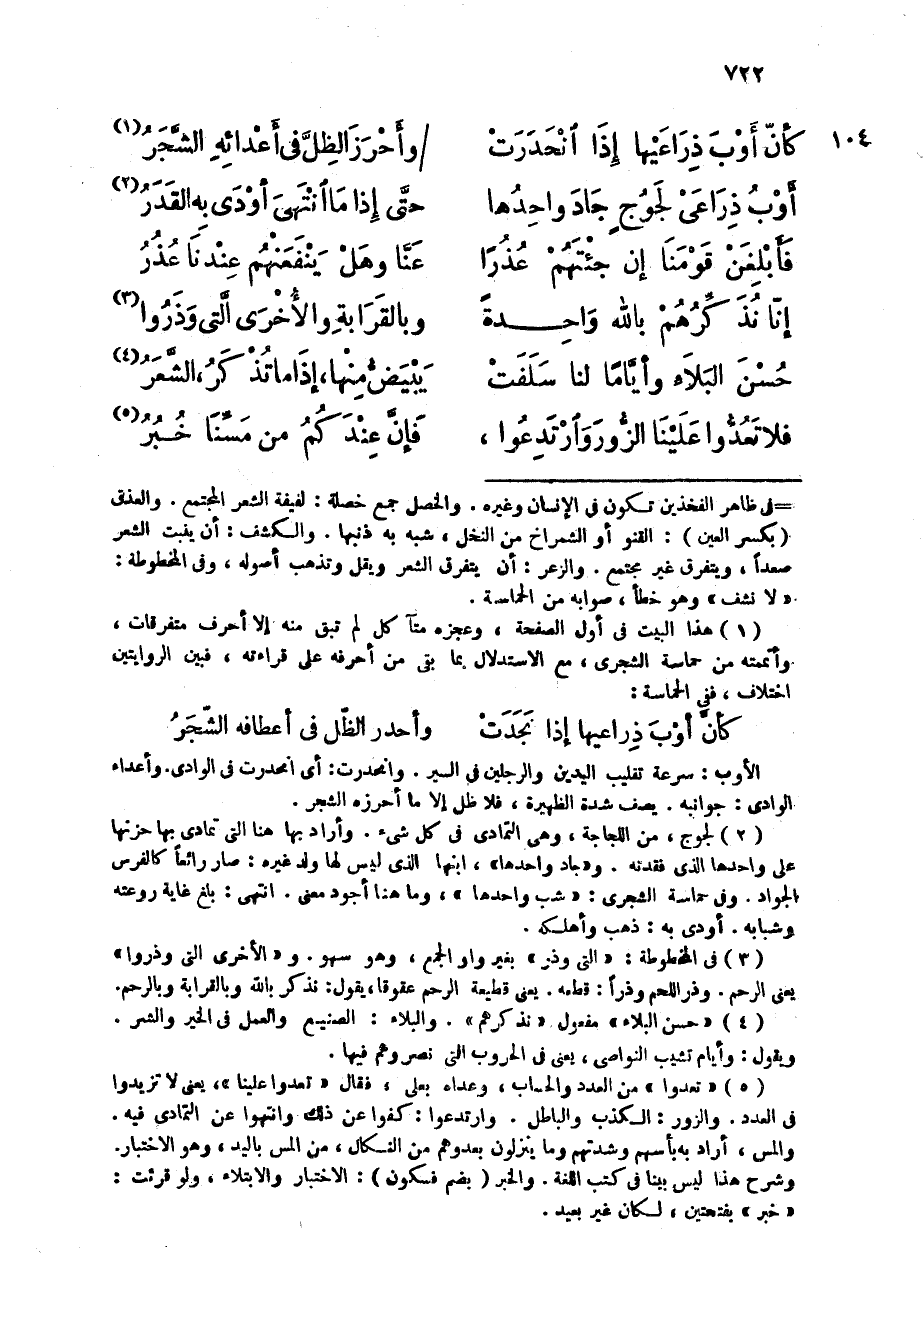 ٧٢٢
١٠٤ كأنّ أَوْبَ ذِرَاعَيْها إِذَا ٱنْحَدَرَتْ / وأَحْرَزَ الظِلَّ فى أَعْدائهِ الشَّجَرُ (١)
أَوْبُ ذِرَاعَىْ لَجُوجٍ جَادَ واحِدُها حتَّى إذا مَا ٱنْتَهَىَ أَوْدَى بِه القَدَرُ (٢)
فَأَبْلِغَنْ قَوْمَنَا إن جِئْتَهُمْ عُذُرًا عَنَّا وهَلْ يَنْفَعَنْهُمْ عِنْدنَا عُذُرُ
إنّا نُذَكِّرُهُمْ باللهِ وَاحِــدةً وبالقَرَابةِ والأُخْرَى الَّتى وَذَرُوا (٣)
حُسْنَ البَلَاءِ وأَيَّامًا لنا سَلَفَتْ يَبْيَضُّ مِنْها، إذَا ما تُذْكَرُ، الشَّعَرُ (٤)
فلا تَعُدُّوا عَلَيْنَا الزُّورَ وَٱرْتَدِعُوا ، فَإنَّ عِنْدَكُمُ من مَسِّنَا خُبُرُ (٥)
=فى ظاهر الفخذين تكون فى الإنسان وغيره . والخصل جمع خصلة : لفيفة الشعر المجتمع . والعذق
( بكسر العين ) : القنو أو الشمراخ من النخل ، شبه به ذنبها . والكشف : أن ينبت الشعر
صعداً ، ويتفرق غير مجتمع . والزعر : أن يتفرق الشعر ويقل وتذهب أصوله ، وفى المخطوطة :
« لا نشف » وهو خطأ ، صوابه من الحماسة .
( ١ ) هذا البيت فى أول الصفحة ، وعجزه متآكل لم تبق منه إلا أحرف متفرقات ،
وأتممته من حماسة الشجرى ، مع الاستدلال بما بقى من أحرفه على قراءته ، فبين الروايتين
اختلاف ، ففى الحماسة :
كأنَّ أَوْبَ ذِراعيها إذا نَجَدَتْ وأحدر الظّل فى أعطافه الشّجَرُ
الأوب : سرعة تقليب اليدين والرجلين فى السير . وانحدرت: أى انحدرت فى الوادى. وأعداء
الوادى : جوانبه . يصف شدة الظهيرة ، فلا ظل إلا ما أحرزه الشجر .
( ٢ ) لجوج ، من اللجاجة ، وهى التمادى فى كل شىء . وأراد بها هنا التى تمادى بها حزنها
على واحدها الذى فقدته . و«جاد واحدها» ، ابنها الذى ليس لها ولد غيره : صار رائعاً كالفرس
الجواد . وفى حماسة الشجرى : « شب واحدها » ، وما هنا أجود معنى . انتهى : بلغ غاية روعته
وشبابه . أودى به : ذهب وأهلكه .
( ٣ ) فى المخطوطة : « التى وذر » بغير واو الجمع ، وهو سهو . و « الأخرى التى وذروا »
يعنى الرحم . وذر اللحم وذراً : قطعه . يعنى قطيعة الرحم عقوقا، يقول: نذكر بالله وبالقرابة وبالرحم.
( ٤ ) « حسن البلاء » مفعول « نذكرهم » . والبلاء : الصنيع والعمل فى الخير والشر .
ويقول : وأيام تشيب النواصى ، يعنى فى الحروب التى نصروهم فيها .
( ٥ ) « تعدوا » من العدد والحساب ، وعداه بعلى ، فقال « تعدوا علينا »، يعنى لا تزيدوا
فى العدد . والزور : الكذب والباطل . وارتدعوا : كفوا عن ذلك وانتهوا عن التمادى فيه .
والمس ، أراد به بأسهم وشدتهم وما ينزلون بعدوهم من النكال ، من المس باليد ، وهو الاختبار.
وشرح هذا ليس بينا فى كتب اللغة . والخبر ( بضم فسكون ) : الاختبار والابتلاء ، ولو قرئت :
« خبر » بفتحتين ، لكان غير بعيد .